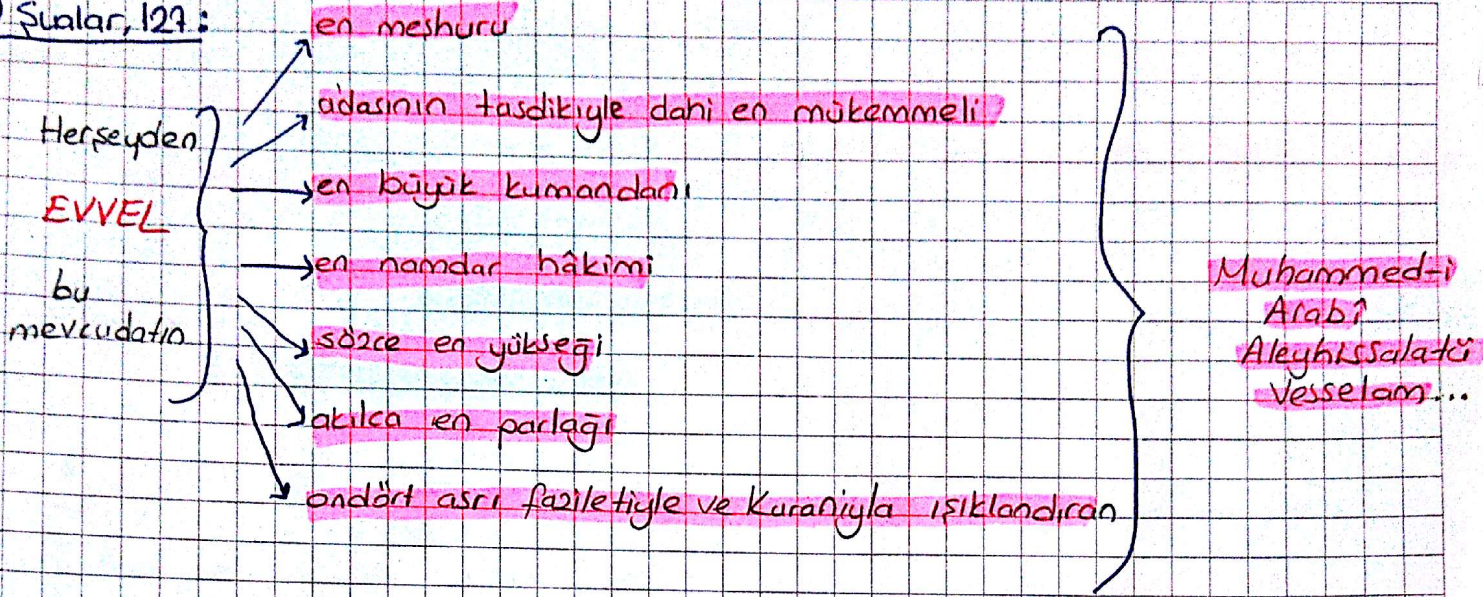 Şualar, 127:
Herşeyden
EVVEL
bu
mevcudatın
en meşhuru
a'dasının tasdikiyle dahi en mükemmeli
en büyük kumandanı
en namdar hâkimi
sözce en yükseği
akılca en parlağı
ondört asrı faziletiyle ve Kuranıyla ışıklandıran
Muhammed-i
Arabî
Aleyhissalatü
Vesselam...